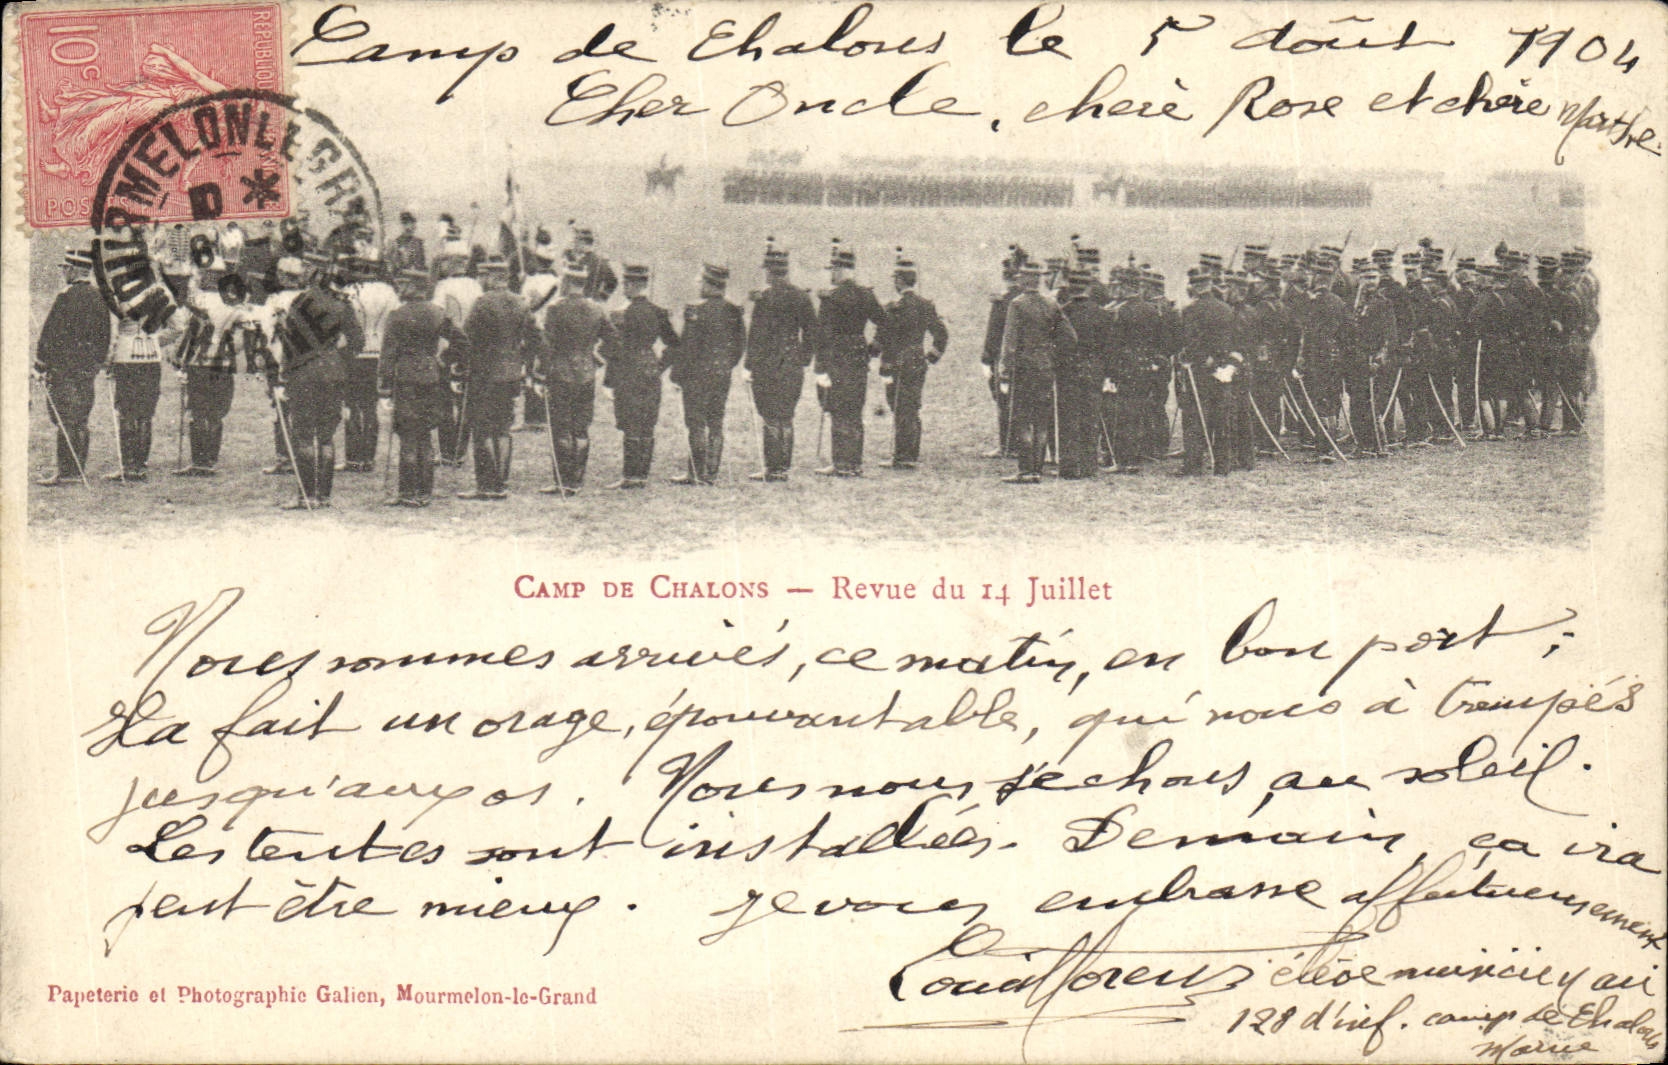 Camp de Chalons le 5 août 1904
Cher Oncle, chere Rose et chère Marthe.
10c
RÉPUBLIQUE
POSTES
MOURMELON LE GRAND
MARNE
CAMP DE CHALONS — Revue du 14 Juillet
Nous sommes arrivés, ce matin, en bon port ;
Il a fait un orage, épouvantable, qui nous à trempés
jusqu'aux os. Nous nous sechons, au soleil.
Les tentes sont installées. Demain, ça ira
peut être mieux. Je vous embrasse affectueusement
Louis élève musicien au
128 d'inf. camp de Chalons
Marne
Papeterie et Photographie Galien, Mourmelon-le-Grand